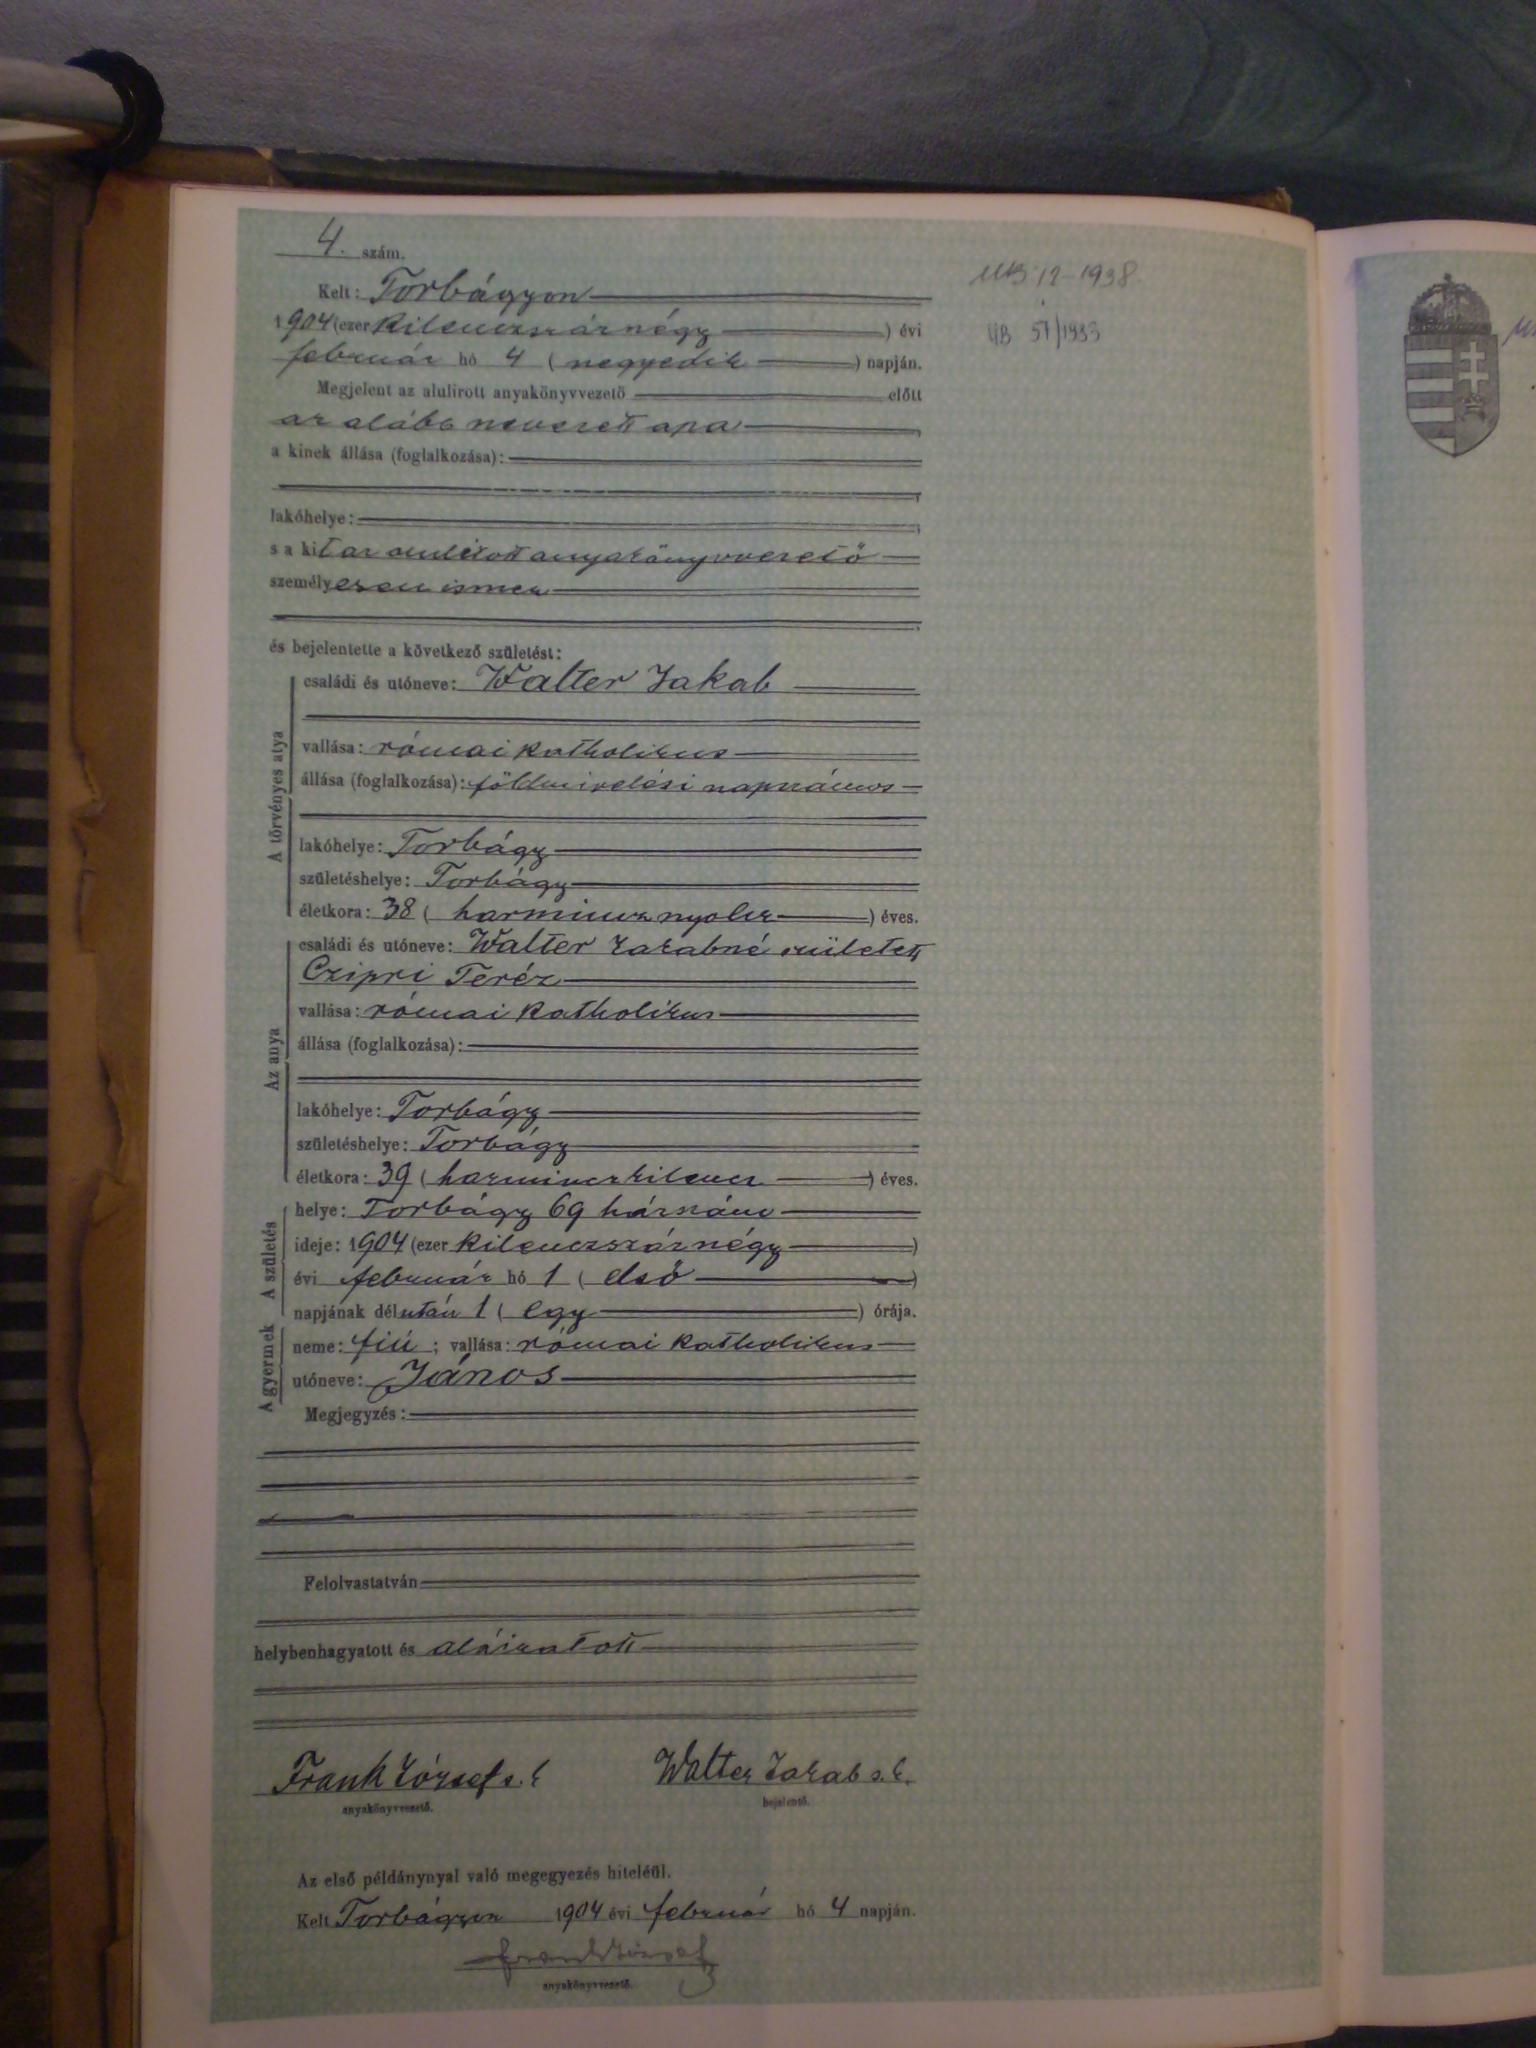 4. szám.
Kelt: Torbágyon
1904 (ezer kilenczszáznégy) évi
február hó 4 (negyedik) napján.
Megjelent az alulirott anyakönyvvezető előtt
az alább nevezett apa,
a kinek állása (foglalkozása):
lakóhelye:
s a kit az alulírott anyakönyvvezető
személyesen ismer
és bejelentette a következő születést:
A törvényes atya
családi és utóneve: Walter Jakab
vallása: római katholikus
állása (foglalkozása): földmivelési napszámos
lakóhelye: Torbágy
születéshelye: Torbágy
életkora: 38 (harmincz nyolcz) éves.
Az anya
családi és utóneve: Walter Jakabné született
Czipri Teréz
vallása: római katholikus
állása (foglalkozása):
lakóhelye: Torbágy
születéshelye: Torbágy
életkora: 39 (harminczkilencz) éves.
A születés
helye: Torbágy 69 házszám
ideje: 1904 (ezer kilenczszáznégy)
évi február hó 1 (első)
napjának délután 1 (egy) órája.
A gyermek
neme: fiú; vallása: római katholikus
utóneve: János
Megjegyzés:
Felolvastatván
helybenhagyatott és aláiratott
Frank József s. k Walter Jakab s. k.
anyakönyvvezető. bejelentő.
Az első példánynyal való megegyezés hiteléül.
Kelt Torbágyon 1904 évi február hó 4 napján.
Frank József
anyakönyvvezető.
12-1938.
ÚB 57/1933